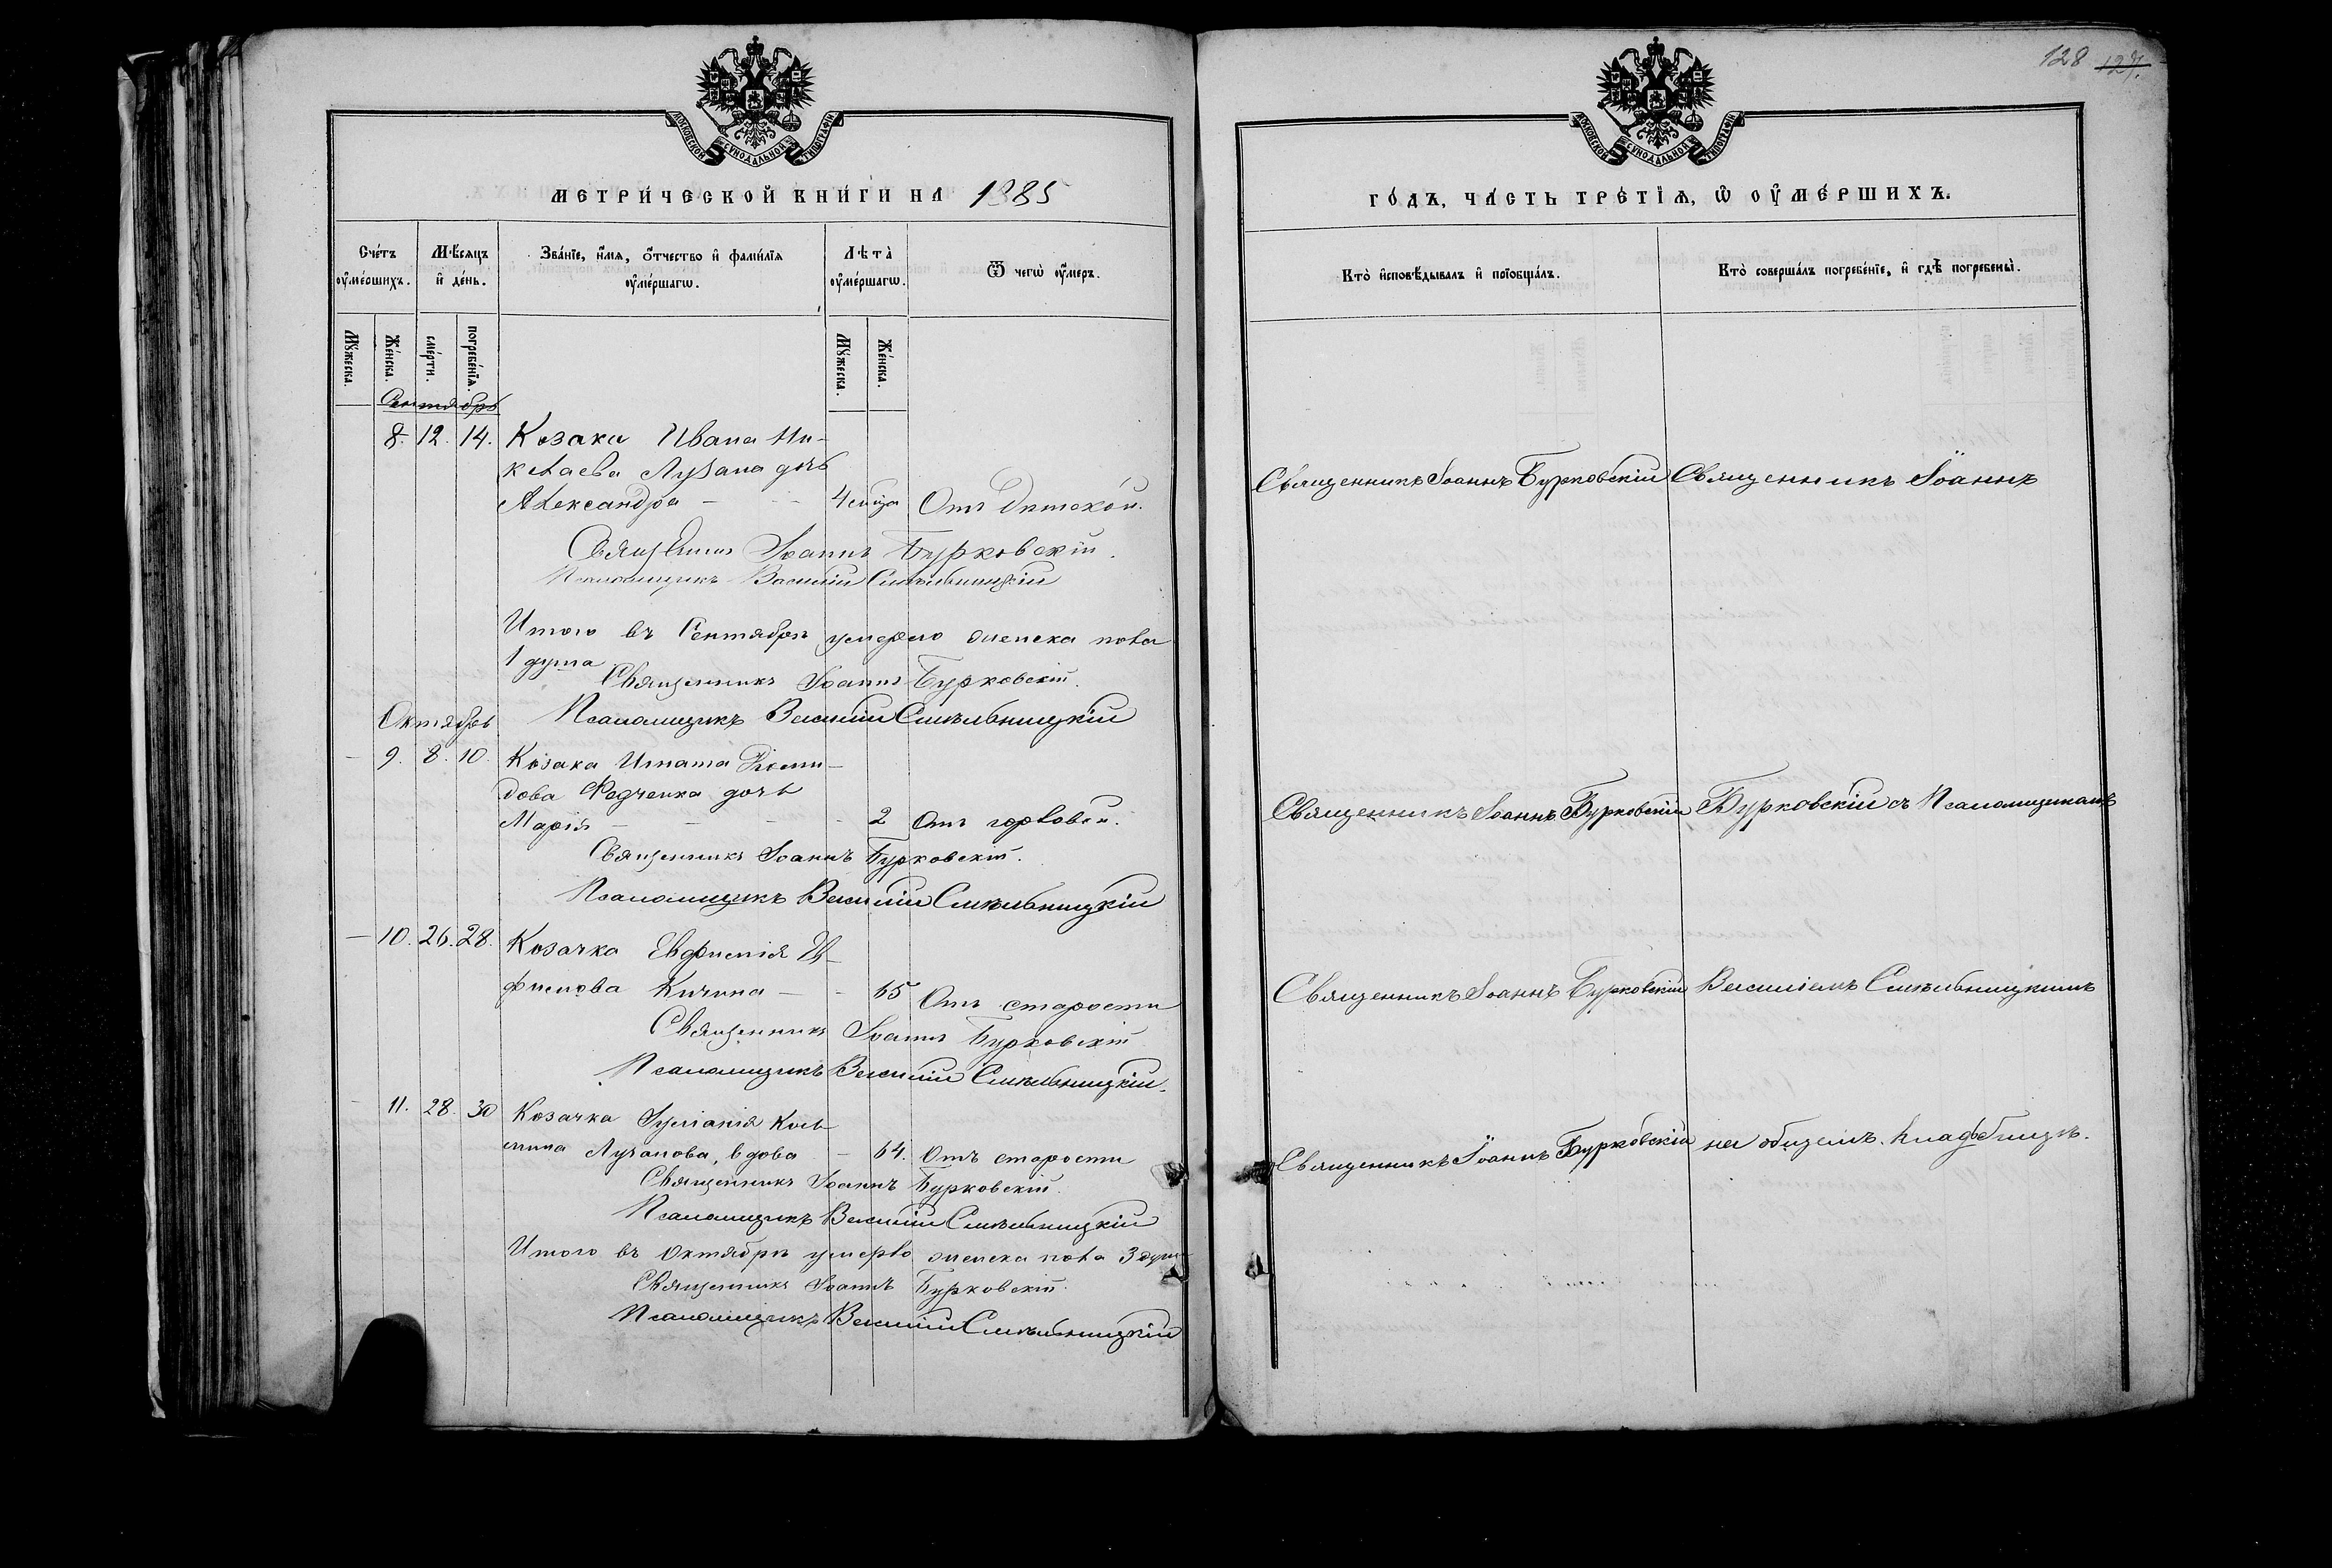 128 127.
МОСКОВСКОЙ СѴНОДАЛЬНОЙ ТИПОГРАФІИ
МЕТРИ́ЧЕСКОЙ КНИ́ГИ НА 1885
Сче́тъ оу҆ме́ршихъ.
Мѣ́сяцъ и҆ де́нь.
Зва́нїе, и҆́мя, ѻ҆́тчество и҆ фами́лїя оу҆ме́ршагѡ.
Лѣта̀ оу҆ме́ршагѡ.
Ѿ чегѡ̀ оу҆́меръ.
Мꙋ́жеска.
Же́нска.
сме́рти.
погребе́нїя.
Мꙋ́жеска.
Же́нска.
Сентябрь
8. 12. 14. Козака Ивана Ни-
колаева Лузана дочь
Александра - 4 мѣсяца Отъ дѣтской.
Священникъ Іоаннъ Бурковскій.
Псаломщикъ Василій Смѣльницкій
Итого въ Сентябрѣ умерло женска пола
1 душа
Священникъ Іоаннъ Бурковскій.
Псаломщикъ Василій Смѣльницкій
Октябрь
9. 8. 10. Козака Игната
дова Федченка дочь
Марія - - - 2 Отъ горловой.
Священникъ Іоаннъ Бурковскій.
Псаломщикъ Василій Смѣльницкій
10. 26. 28. Козачка Евфимія
фимова - - 65 Отъ старости
Священникъ Іоаннъ Бурковскій
Псаломщикъ Василій Смѣльницкій.
11. 28. 30 Козачка Іуліанія Козь-
мина вдова - 64. Отъ старости
Священникъ Іоаннъ Бурковскій.
Псаломщикъ Василій Смѣльницкій
Итого въ Октябрѣ умерло женска пола 3 души
Священникъ Іоаннъ Бурковскій.
Псаломщикъ Василій Смѣльницкій
МОСКОВСКОЙ СѴНОДАЛЬНОЙ ТИПОГРАФІИ
ГО́ДЪ, ЧА́СТЬ ТРЕ́ТЇЯ, Ѡ҆ ОУ҆МЕ́РШИХЪ.
Кто̀ и҆сповѣ́дывалъ и҆ прїобща́лъ.
Кто̀ соверша́лъ погребе́нїе, и҆ гдѣ̀ погребены̀.
Священникъ Іоаннъ Бурковскій Священникъ Іоаннъ
Священникъ Іоаннъ Бурковскій Бурковскій съ Псаломщикомъ
Священникъ Іоаннъ Бурковскій Василіемъ Смѣльницкимъ
Священникъ Іоаннъ Бурковскій на общемъ кладбищѣ.